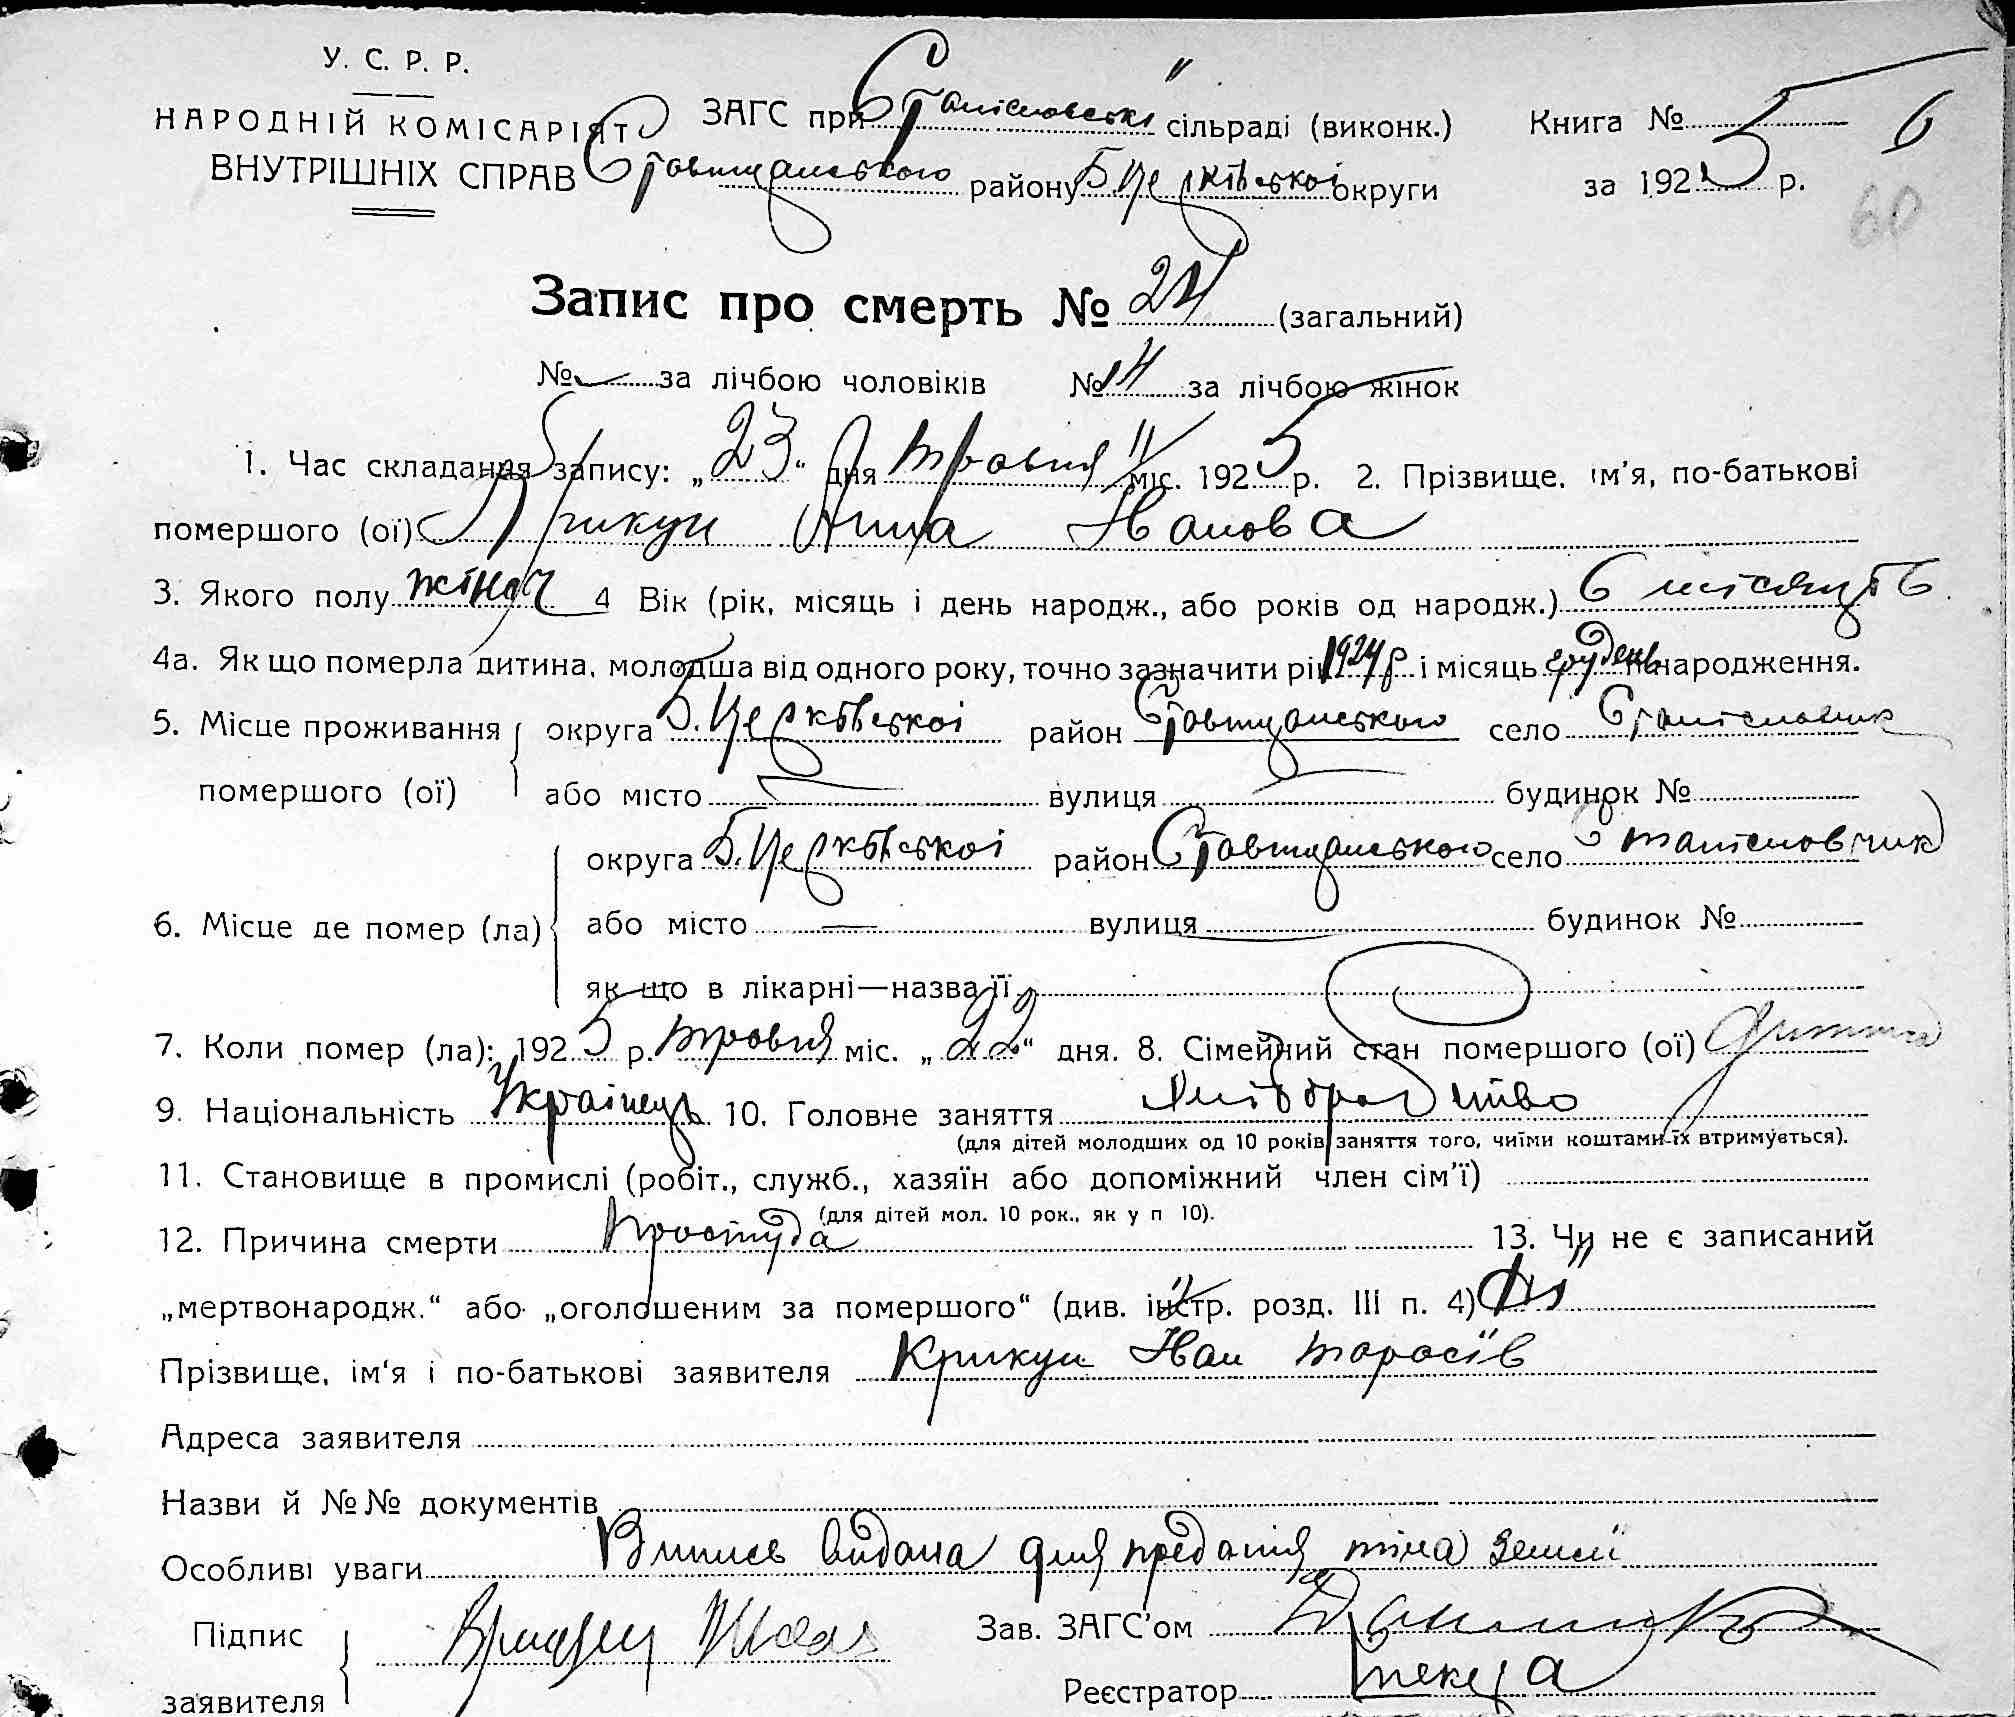 У. С. Р. Р.
НАРОДНІЙ КОМІСАРІЯТ
ВНУТРІШНІХ СПРАВ
ЗАГС при Станіславській сільраді (виконк.)
Ставищанського району Б. Церківської округи
Книга № 5 6
за 1925 р.
60
Запис про смерть № 24 (загальний)
№ — за лічбою чоловіків № 14 за лічбою жінок
1. Час складання запису: „23“ дня травня міс. 1925 р. 2. Прізвище, ім'я, по-батькові
помершого (ої) Крикун Анна Іванова
3. Якого полу жіноч 4 Вік (рік, місяць і день народж., або років од народж.) 6 місяців
4а. Як що померла дитина, молодша від одного року, точно зазначити рік 1924 р і місяць грудень народження.
5. Місце проживання округа Б. Церківської район Ставищанського село Станіславчик
помершого (ої) або місто — вулиця — будинок №
округа Б. Церківської район Ставищанського село Станіславчик
6. Місце де помер (ла) або місто — вулиця — будинок №
як що в лікарні—назва її
7. Коли помер (ла): 1925 р. травня міс. „22“ дня. 8. Сімейний стан помершого (ої) дитина
9. Національність Українець 10. Головне заняття хліборобство
(для дітей молодших од 10 років заняття того, чиїми коштами їх втримується).
11. Становище в промислі (робіт., служб., хазяїн або допоміжний член сім'ї)
(для дітей мол. 10 рок., як у п 10).
12. Причина смерти простуда 13. Чи не є записаний
„мертвонародж.“ або „оголошеним за помершого“ (див. інстр. розд. III п. 4) Ні
Прізвище, ім'я і по-батькові заявителя Крикун Іван Тарасів
Адреса заявителя
Назви й №№ документів
Особливі уваги Випись видана для предания тіла землі
Підпис
заявителя
Зав. ЗАГС'ом
Реєстратор